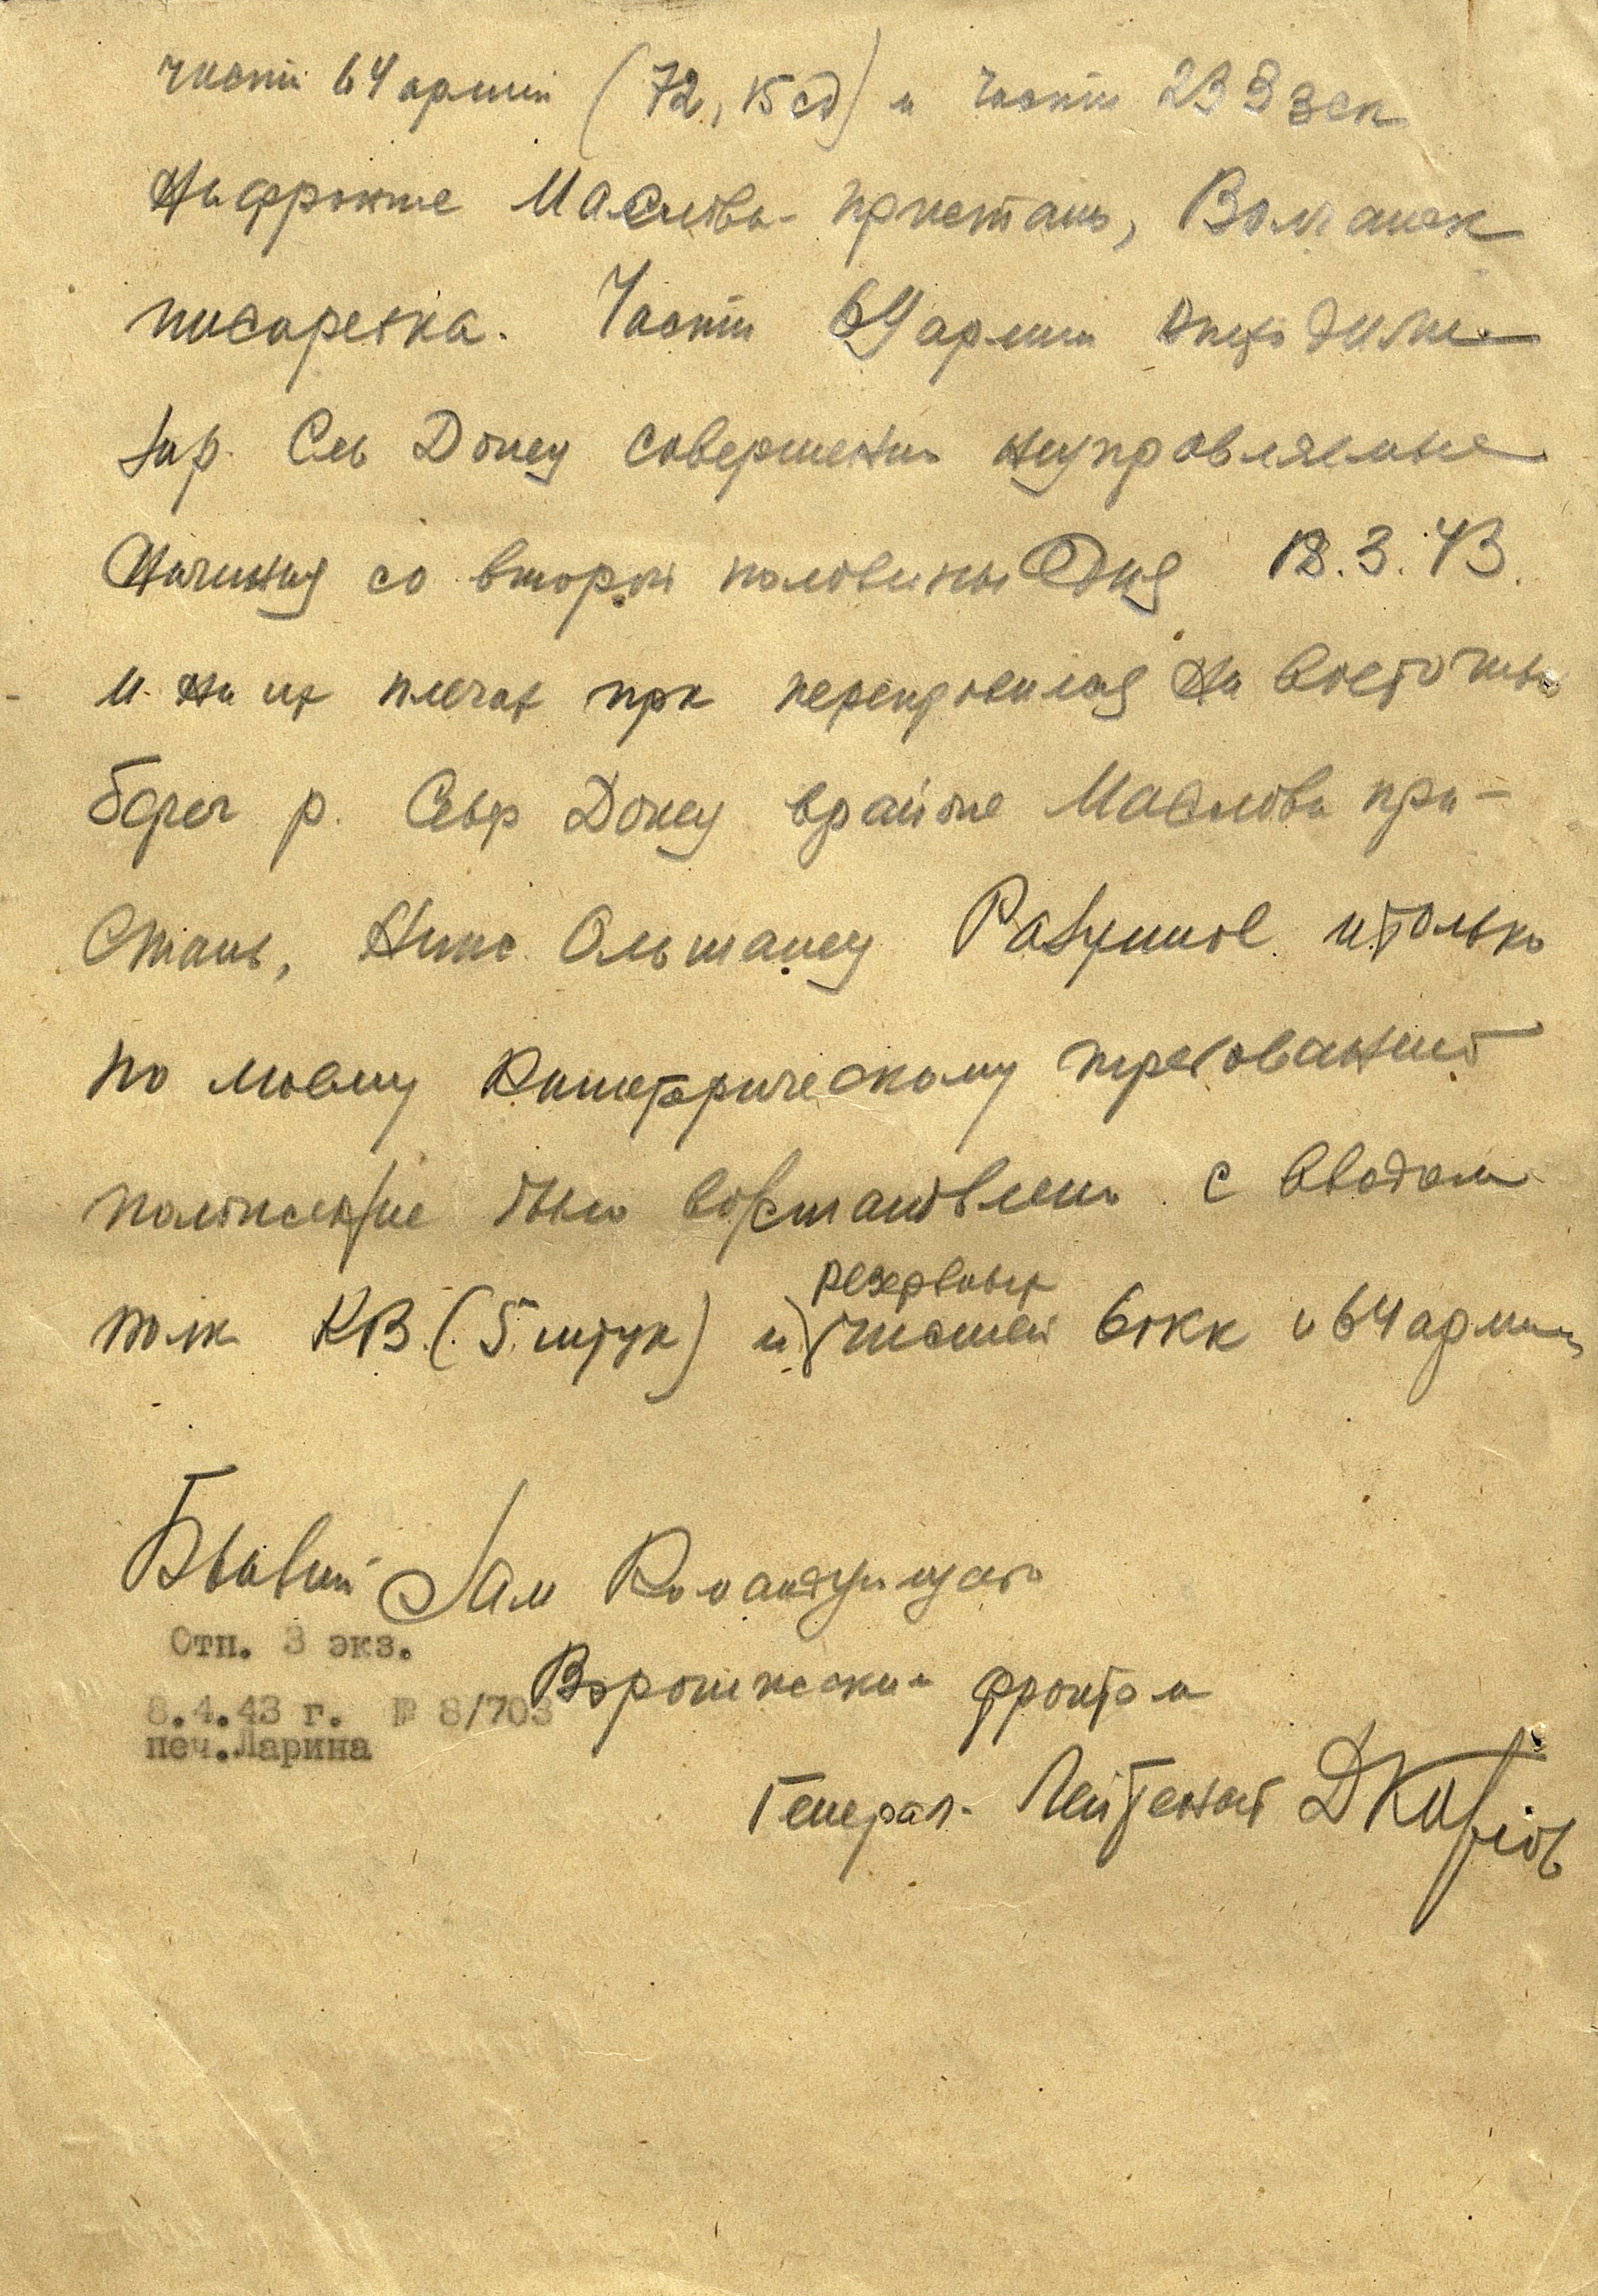 части 64 армии (72, 15 сд) и части
На фронте Маслова-пристань, Волчанск
писаревка. Части 64 армии отходили
за р. Сев Донец совершенно неуправляемые
Начиная со второй половины Дня 18.3.43.
и на их плечах пр-к переправился на восточный
берег р. Севр Донец в районе Маслова при-
стань, Нижн. Ольшанец Разумное и только
по моему Категорическому требованию
положение было восстановлено с вводом
полк КВ (5 штук) и резервных частей 6гкк и 64 армии
Бывший Зам Командующего
Воронежским фронтом
Отп. 3 экз.
8.4.43 г. № 8/703
печ.Ларина
Генерал-Лейтенант ДКозлов